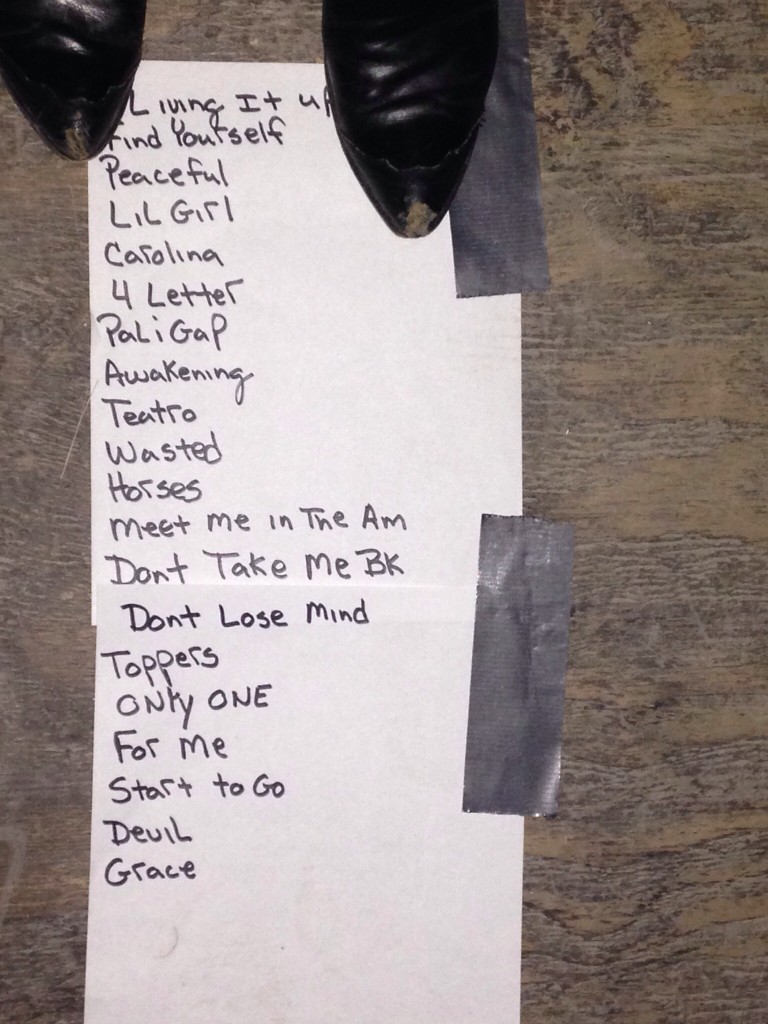 Living It up
Find Yourself
Peaceful
LiL Girl
Carolina
4 Letter
PaLi GaP
Awakening
Teatro
Wasted
Horses
Meet me in The Am
Dont Take Me BK
Dont Lose Mind
Toppers
ONly ONE
For Me
Start to Go
DeviL
Grace